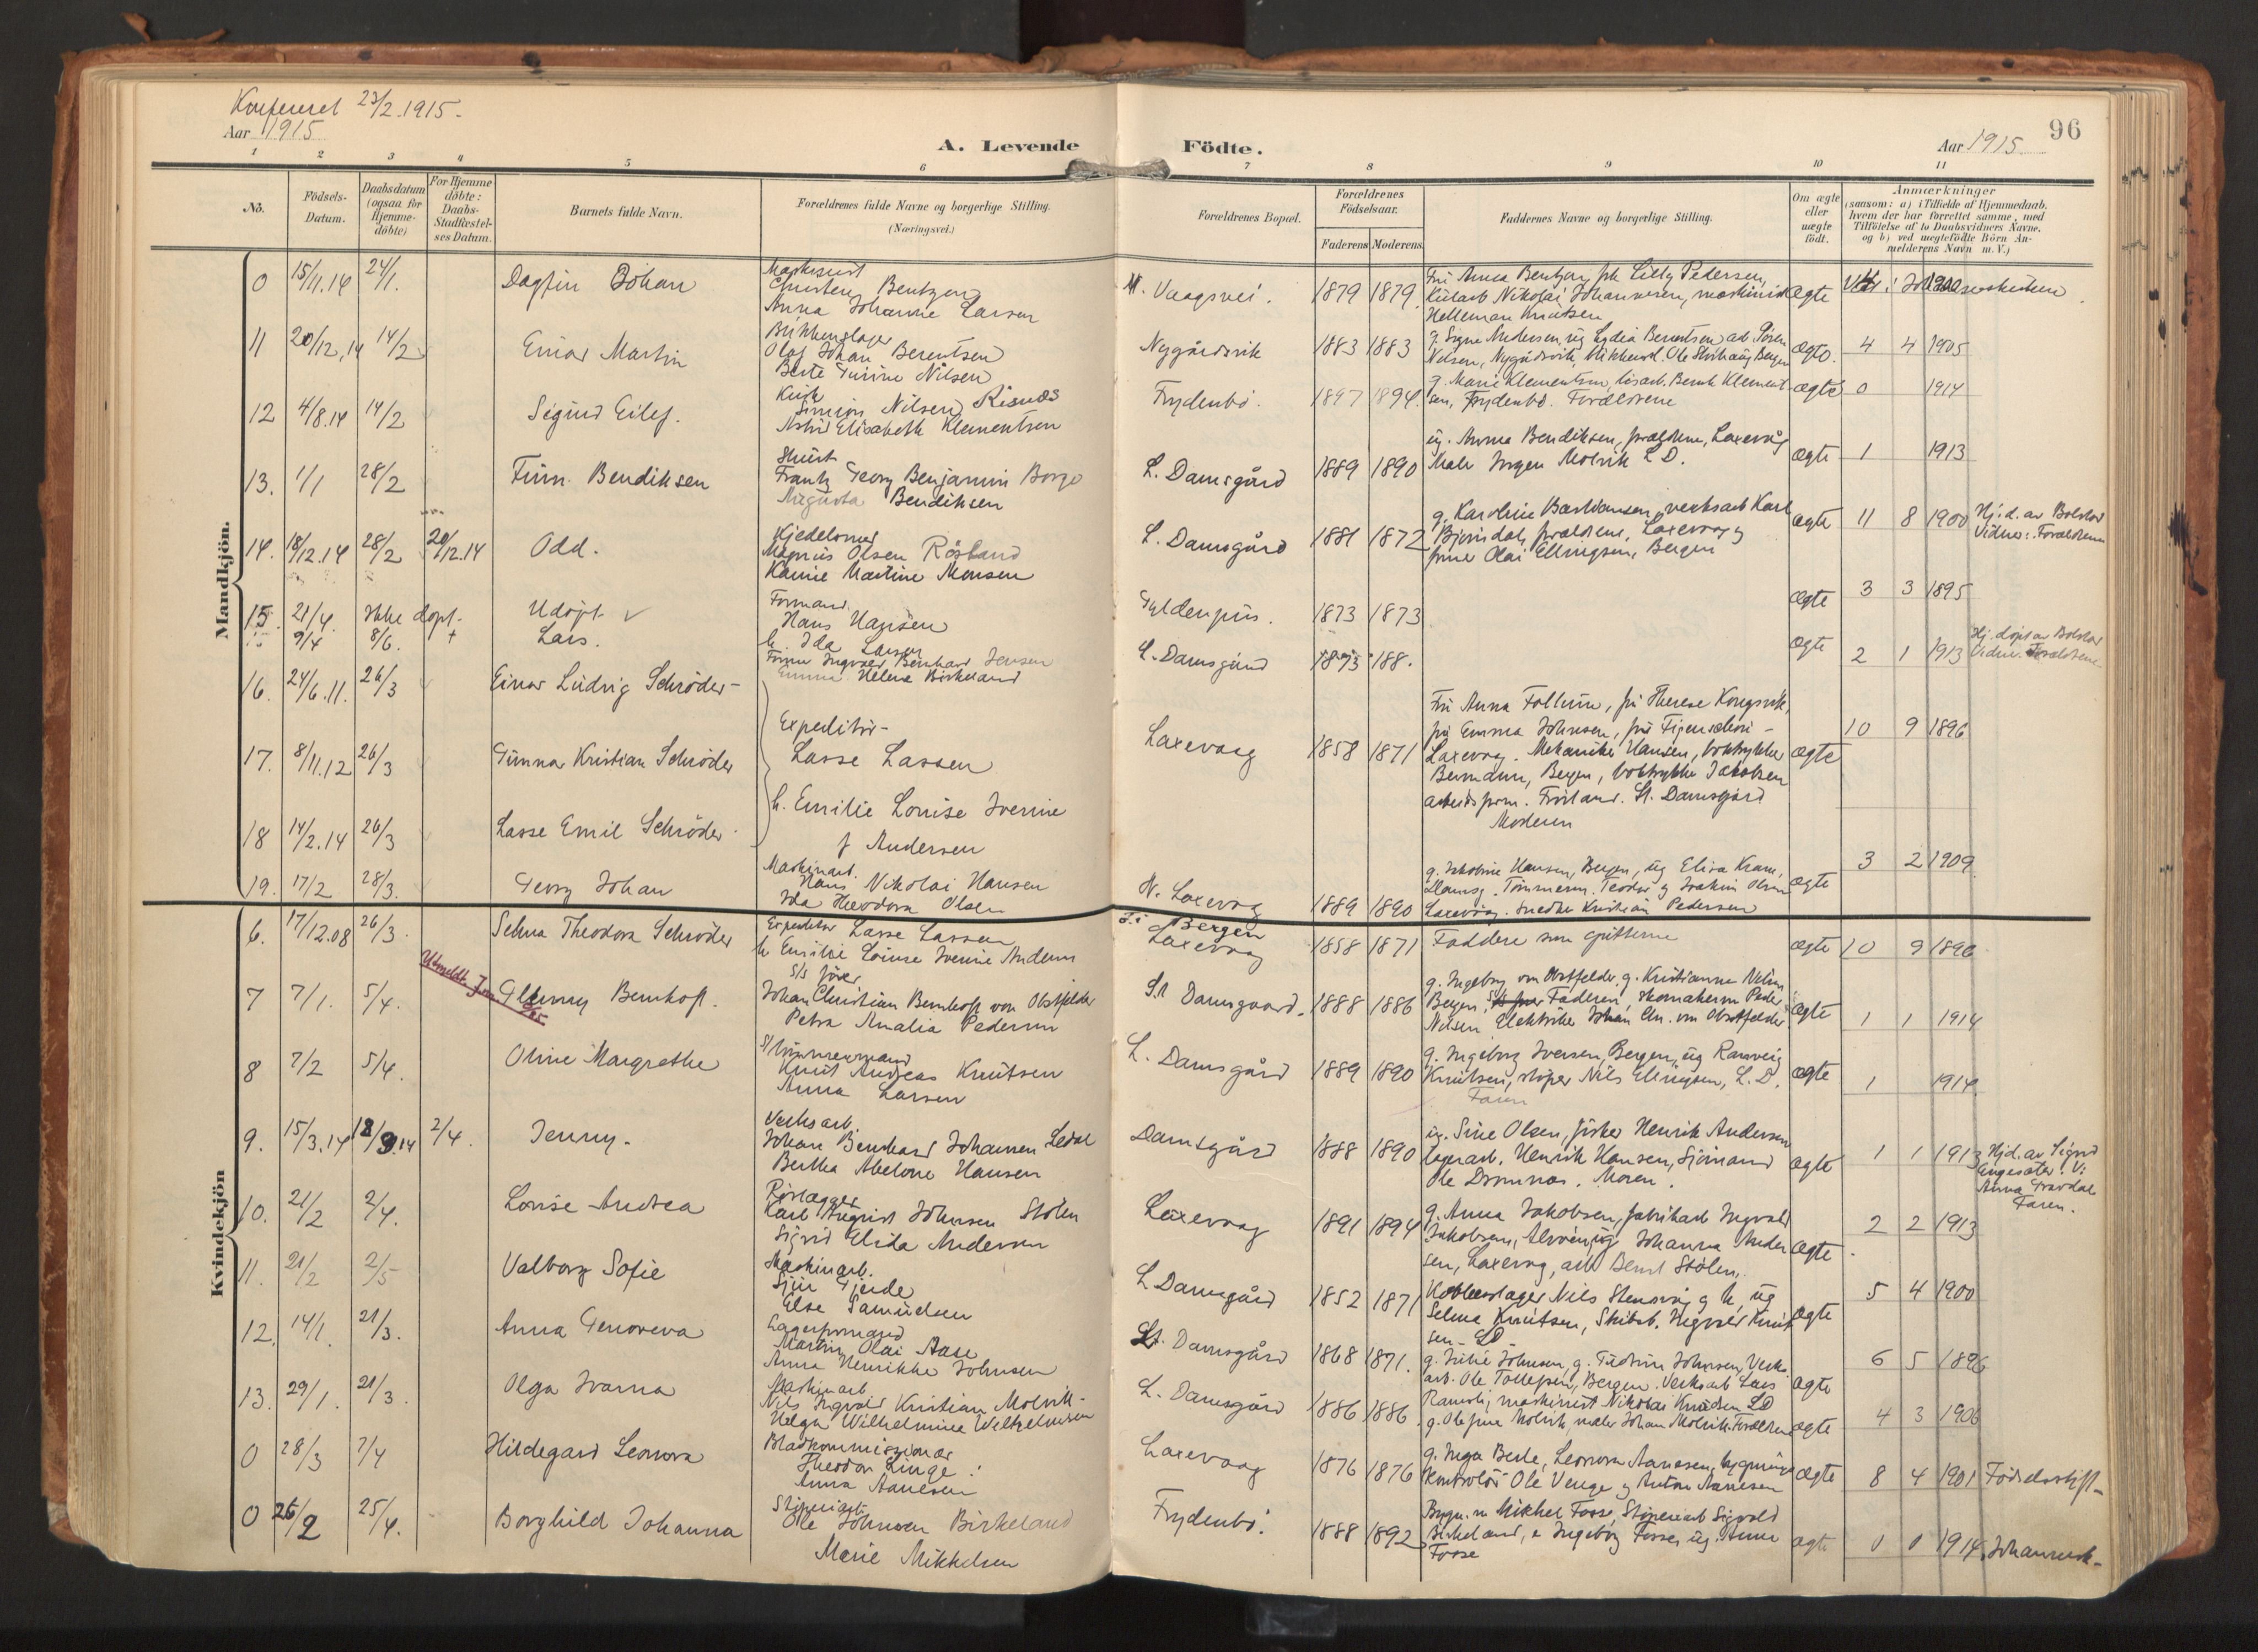 Konfereret 23/2.1915.
Aar 1915
A. Levende Födte.
Aar 1915
96
1 2 3 4 5 6 7 8 9 10 11
Nö.
Födsels-Datum.
Daabsdatum (ogsaa for Hjemme-döbte)
For Hjemme döbte: Daabs-Stadfæstel-ses Datum.
Barnets fulde Navn.
Forældrenes fulde Navne og borgerlige Stilling. (Næringsvei.)
Forældrenes Bopæl.
Forældrenes Födselsaar.
Faderens Moderens
Faddernes Navne og borgerlige Stilling.
Om ægte eller uægte födt.
Anmærkninger
(saasom: a) i Tilfælde af Hjemmedaab.
hvem der har forrettet samme, med
Tilföielse af to Daabsvidners Navne.
og b) ved uægtefödte Börn An-
melderens Navn m. V.)
Mandkjön.
0 15/11.14 24/1. Dagfin Johan
Maskinist
Christen Bentzen
Anna Johanne Larsen
Vaagsvei. 1879 1879
Fru Anna Bentzen, frk Lilly Pedersen,
Nikolai Johannesen, maskinist
Helleman Knutsen
ægte
11 20/12.14 14/2 Einar Martin
Blikkenslager
Olaf Johan Berentsen
Berte Gurine Nilsen
Nygårdsvik 1883 1883
g. Signe Andersen, ug Lydia Berentsen, arb.
Nilsen, Nygårdsvik, Ole Bergen
ægte. 4 4 1905
12 4/8.14 14/2 Sigurd Eilef.
Kusk
Simon Nilsen Risnes
Astrid Elisabeth Klementsen
Frydenbö. 1897 1894.
g. Marie Klementsen, Bernt Klement
sen, Frydenbö. Forældrene
ægte 0 1914
13. 1/1 28/2 Finn Bendiksen
Frantz Georg Benjamin Borge
Augusta Bendiksen
L. Damsgård 1889 1890
ug. Anna Bendiksen, forældrene, Laxevåg
Maler Jørgen Molvik L D.
ægte 1 1913
14. 18/12.14 28/2 20/12.14 Odd.
Kjedelsmed
Magnus Olsen Rösland
Kamie Martine Monsen
L. Damsgård 1881 1872
g. Karoline, verksarb Karl
Bjørndal, forældrene, Laxevaag
Olai Ellingsen, Bergen
ægte 11 8 1900
Hj.d. av Bolstad
Vidner: Forældrene
15. 21/4. Ikke döpt. Udöpt
Formand
Hans Hansen
h. Ida Larsen
Gyldenpris. 1873 1873
ægte 3 3 1895
9/4 8/6. + Lars.
Ingvald Bernhard Jensen
Emma Helene Birkeland
L. Damsgård 188.
ægte 2 1 1913
Hj. döpt av Bolstad
Vidne: Forældrene
16. 24/6.11. 26/3 Einar Ludvig Schröder
17. 8/11.12 26/3 Gunnar Kristian Schröder
18 14/2.14 26/3 Lasse Emil Schröder
Expeditör
Lasse Lassen
h. Emilie Louise Iverine
f Andersen
Laxevaag 1858 1871
Fru Anna Follum, fru Therese Kongsvik,
fru Emma Johnsen, fru
Laxevaag. Mekaniker Hansen, boktrykker
Bergen, boktrykker Jakobsen
St. Damsgård
Moderen
ægte 10 9 1896
19. 17/2 28/3. Georg Johan
Maskinarb.
Hans Nikolai Hansen
Ida Theodora Olsen
N. Laxevaag 1889 1890
g. Jakobine Hansen, Bergen, ug Elisa
Damsg. Tömmerm. Teodor og Joakim Olsen
Laxevaag. Snedker Kristian Pedersen
ægte 3 2 1909
Kvindekjön
6. 17/12.08 26/3. Selma Theodora Schröder
Expeditör Lasse Lassen
h Emilie Louise Iverine Andersen
Bergen
Laxevaag 1858 1871
Faddere som guttene
ægte 10 9 1896
7 7/1. 5/4. Bernhoft.
Johan Christian Bernhoft von Obstfelder
Petra Amalia Pedersen
St Damsgaard. 1888 1886
g. Ingeborg von Obstfelder, g. Kristianna Nilsen
Bergen, Faderen, skomakerm Peder
Nilsen Elektriker Johan Chr. von Obstfelder
ægte 1 1 1914
8 7/2 5/4. Oline Margrethe
Tömmermand
Knut Andreas Knutsen
Anna Larsen
L. Damsgård 1889 1890
g. Ingeborg Iversen, Bergen, ug Ransveig
Knutsen, støper Nils Ellingsen, L.D.
Faren
ægte 1 1914.
9. 15/3.14 18/3.14 2/4. Jenny.
Verksarb.
Johan Bernhard Johansen Ledal
Bertha Abelone Hansen
Damsgård 1888 1890
ug. Sine Olsen, fisker Henrik Andersen
lagerarb. Henrik Hansen, Sjömand
Ole Dromnes. Moren.
ægte 1 1 1913
Hjd. av Sigrid
Angesäter. V:
Anna Travdal
Faren.
10. 21/2 2/4. Lovise Andrea
Rörlægger
Karl August Johnsen Stölen
Sigrid Elida Andersen
Laxevaag 1891 1894
g. Anna Jakobsen, fabrikarb Ingvald
Jakobsen, Alvöen, ug Johanna Ander
sen, Laxevaag, arb Bernt Stölen,
ægte 2 2 1913
11. 21/2 2/5 Valborg Sofie
Maskinarb.
Gjerde
Else Samuelsen
L Damsgård 1852 1871
Kobberslager Nils Stensvig g h, ug
Selma Knutsen, Skibsb. Ingvald Knut
sen LD
ægte 5 4 1900
12. 14/1. 21/3. Anna Genoveva
Lagerformand
Martin Olai Aase
Anna Henrikke Johnsen
St. Damsgård 1868 1871.
g. Julie Johnsen, g. Gudrun Johnsen, Verks
arb. Ole Tollefsen, Bergen. Verksarb Lars
Ramsli, maskinist Nikolai Knudsen LD
ægte 6 5 1896
13. 29/1. 21/3. Olga Ivarna
Maskinarb
Nils Ingvald Kristian Molvik
Helga Wilhelmine Wilhelmsen
L. Damsgård 1886 1886
g. Olefine Molvik, maler Johan Molvik. Forældrene
ægte 4 3 1906
0 28/3 7/4 Hildegard Leonora
Bladkommissionær
Theodor Linge
Anna Aanesen
Laxevaag 1876 1876
g. Inga Berle, Leonora Aanesen, bygnings
kontrolör Ole Venge og Anton Aanesen
ægte 8 4 1901 Födselsstift
0 26/2 25/4. Borghild Johanna
Ole Johnsen Birkeland
Marie Mikkelsen
Frydenbö. 1888 1892
Mikkel Fosse, Støperiarb Sigvald
Birkeland, Ingeborg Fosse, ug. Anna
Fosse
ægte 0 0 1914. Johannesk